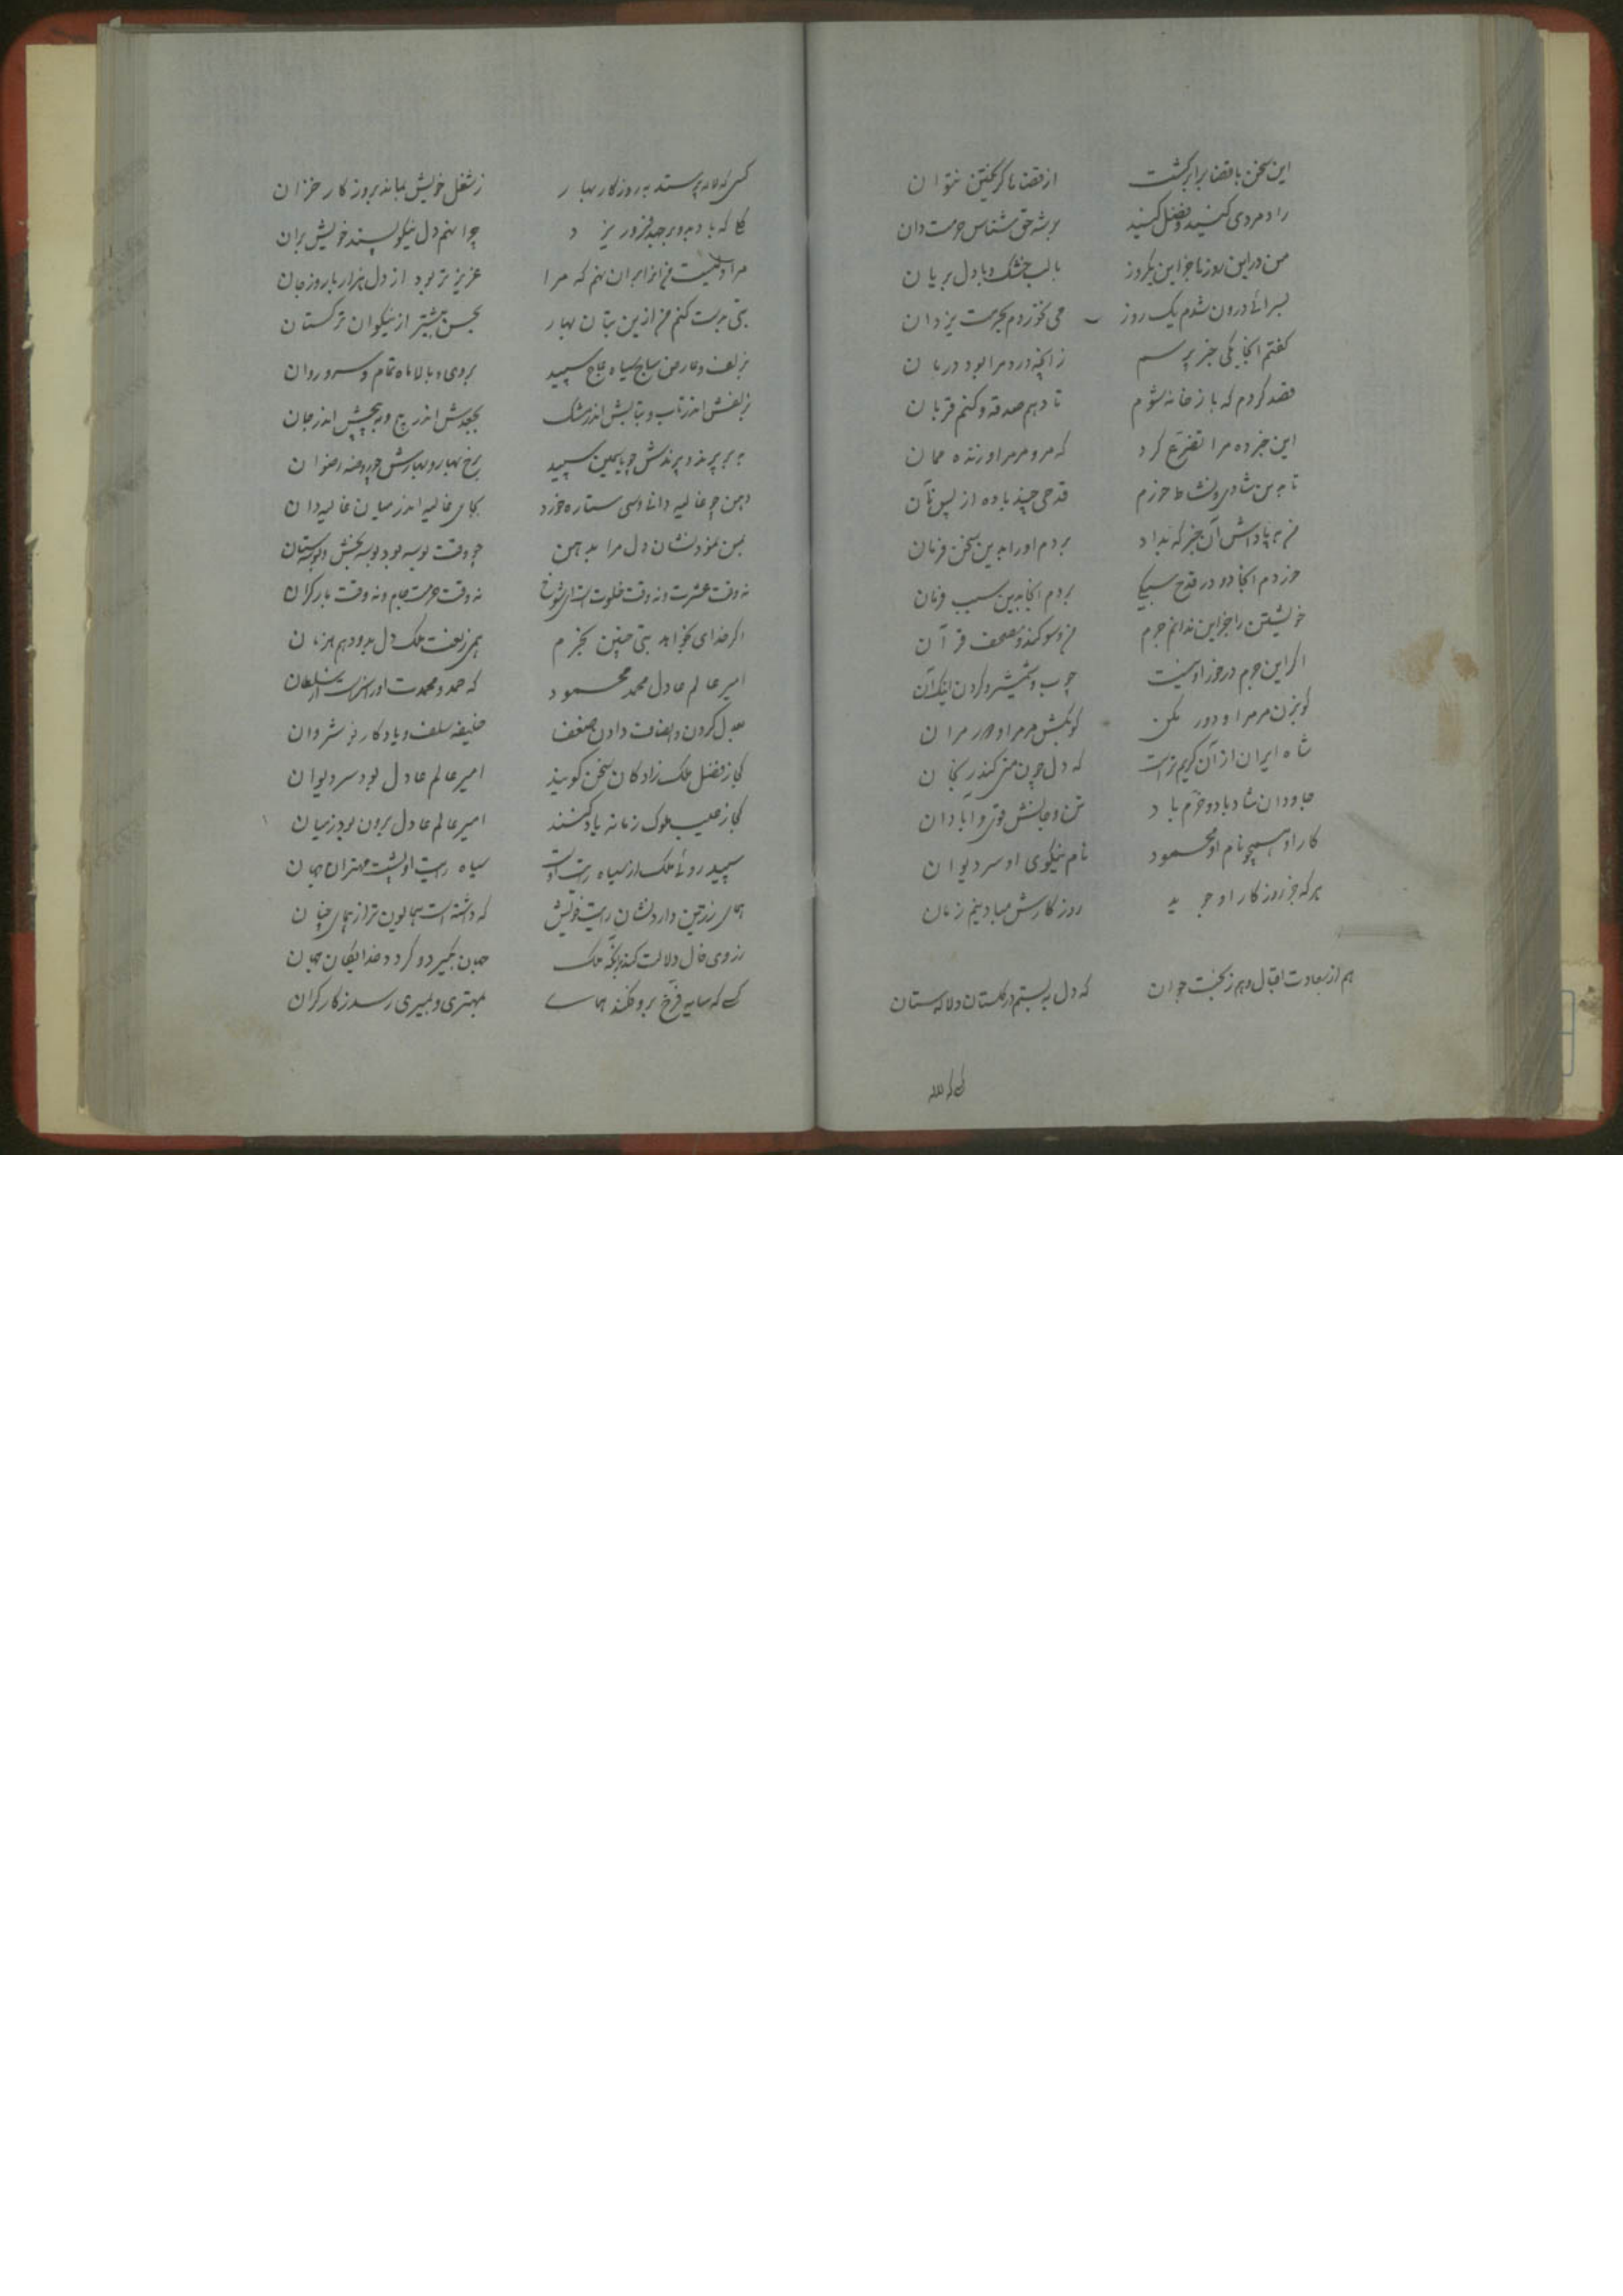 این سخن با قضا برابر گشت از قضاها گریختن نتوان
رادمردی کنید و فضل کنید بر شه حق شناس حرمت دان
من در این روزها جز این یکروز با لب خشک و با دل بریان
بسرائی درون شدم یک روز می نخوردم بحرمت یزدان
گفتم آنجا یکی خبر پرسم زانچه درد مرا بود درمان
قصد کردم که باز خانه شوم تا دهم صدقه و کنم قربان
این خبرده مرا تضرع کرد که مرو مر مرا و زنده ممان
تا به من شادی و نشاط خورم قدحی چند باده از پس نان
من به پاداش آن خبر که بداد بردم او را بدین سخن فرمان
خوردم آنجا دو در قدح سیکی بردم آنجا بدین سبب فرمان
خویشتن را جز این ندانم جرم من و سوگند و مصحف قرآن
اگر این جرم در خور ادبست چوب و شمشیر و گردن اینک آن
گو بزن مر مرا و دور مکن گو بکش مر مرا و دور مران
شاه ایران از آن کریم ترست که دل چون منی کند رنجان
جاودان شاد باد و خرم باد تن و جانش قوی و آبادان
کار او همچو نام او محمود نام نیکوی او سر دیوان
هر که جز روزگار او جوید روزگارش مباد نیم زمان
هم از سعادت اقبال و هم ز بخت جوان که دل نبستم در گلستان و لاله ستان
کسی که
کسی که لاله پرستد به روزگار بهار ز شغل خویش بماند بروزگار خزان
گلی که باد بر او برجهد فرو ریزد چرا نهم دل نیکو پسند خویش بران
مرا دلیست من از بهر آن نهم که مرا عزیزتر بود از دل هزار بار و ز جان
بتی بدست کنم من ازین بتان بهار بحسن بیشتر از نیکوان ترکستان
بزلف و عارض ساج سیاه و عاج سپید بروی و بالا ماه تمام و سرو روان
بزلفش اندر تاب و بتابش اندر مشک بجعدش اندر پیچ و به پیچش اندر جان
به بر پرند و پرندش چو یاسمین سپید برخ بهار و بهارش چو روضه رضوان
دهن چو غالیه دانی و سی ستاره خرد بجای غالیه اندر میان غالیه دان
بمن نموده نشان دل مرا بدهن چو وقت بوسه بود بوسه بخش و بوسه ستان
نه وقت عشرت و نه وقت خلوت این شوخ نه وقت خدمت خام و نه وقت بار گران
اگر خدای بخواهد بتی چنین بخرم همی ز نعمت ملک دل بدو دهم هزمان
امیر عالم عادل محمد محمود که حمد و محمدت او راسزاست از سلطان
عدل کردن و انصاف دادن ضعفا خلیفه سلف و یادگار نوشروان
کجا ز فضل ملک زادگان سخن گویند امیر عالم عادل بود سر دیوان
کجا ز عیب ملوک زمانه یاد کنند امیر عالم عادل برون بود ز میان
سپید روی ملک از سیاه رایت اوست سیاه رایت او پشت مهتران جهان
همای زرین دارد نشان رایت خویش که داشته است همایون تر از همای نشان
ز روی فال دلالت کند بر آنکه ملک جهان بگیرد و گردد خدایگان جهان
کسی که سایه فرخ برو فکند همای بمهتری و بمیری رسد ز کار گران